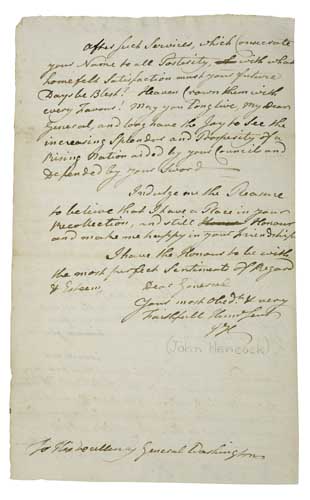 After such Services, which Consecrate
your Name to all Posterity, with what
homefelt Satisfaction must your future
Days be Blest! Heaven Crown them with
every Favour! May you Long live, My Dear
General, and long have the Joy to See the
increasing Splendor and Prosperity of a
Rising Nation aided by your Councils and
Defended by your Sword
Indulge me the Pleasure
to believe that I have a Place in your
Recollection, and still Honour
and make me happy in your Friendship
I have the Honour to be with
the most perfect Sentiments of Regard
& Esteem,
Dear General
Your most Obedt. & very
Faithfull Hum Servt
JH
(John Hancock)
To His Excellency General Washington